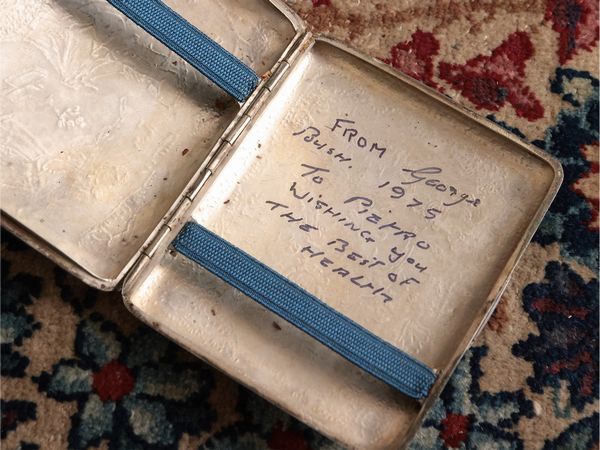 FROM George
Bush. 1975
To PIETRO
WISHING you
THE BEST OF
HEALTH